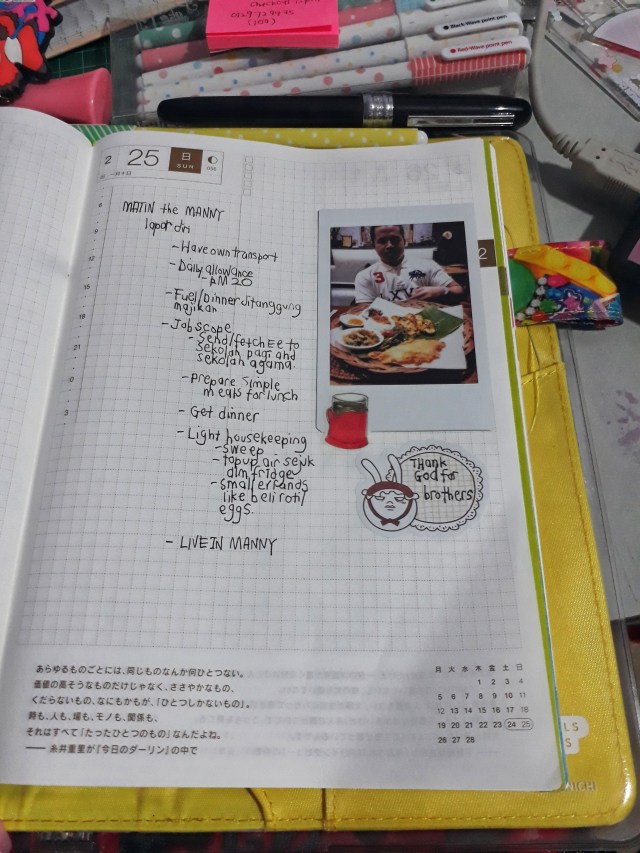 0129729445
Black•Wave point pen
Red•Wave point pen
2
25
日
SUN
056
MATIN the MANNY
lapor diri
- Have own transport
- Daily allowance
- RM 20
- Fuel/Dinner ditanggung
majikan
- Job scope
- Send/fetch EE to
sekolah pagi and
sekolah agama.
- Prepare simple
meals for lunch
- Get dinner
- Light housekeeping
- sweep
- topup air sejuk
dlm fridge
- small errands
like beli roti/
eggs.
- LIVE IN MANNY
6
9
12
15
18
21
0
3
2
3
THank
God for
brothers
あらゆるものごとには、同じものなんか何ひとつない。
価値の高そうなものだけじゃなく、ささやかなもの、
くだらないもの、なにもかもが、「ひとつしかないもの」。
時も、人も、場も、モノも、関係も、
それはすべて「たったひとつのもの」なんだよね。
── 糸井重里が『今日のダーリン』の中で
月 火 水 木 金 土 日
1 2 3 4
5 6 7 8 9 10 11
12 13 14 15 16 17 18
19 20 21 22 23 24 25
26 27 28